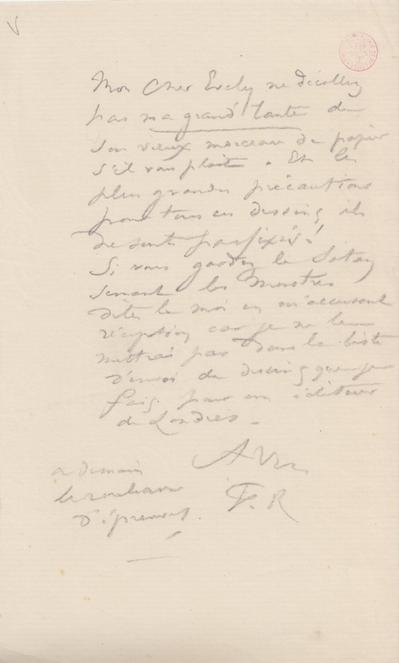 Mon Cher Evely ne décollez
pas ma grand'tante de
son vieux morceau de papier
s'il vous plait. Et les
plus grandes précautions
pour tous ces dessins, ils
ne sont pas fixés!
Si vous gardez le Satan
semant les Monstres
dites le moi en m'accusant
réception car je ne le
mettrai pas dans la liste
d'envoi de dessins que je
fais pour un éditeur
de Londres.
A Vous
a demain
d'épreuves.
F. R